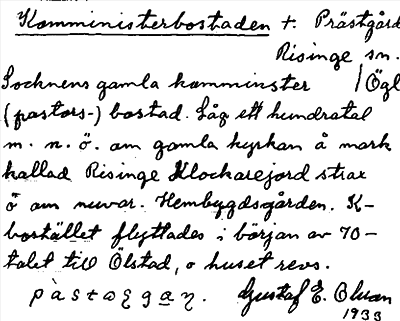 Komministerbostaden t. Prästgård
Risinge sn.
Socknens gamla komminster / Ögl
(pastors-) bostad. Låg ett hundratal
m. n. ö. om gamla kyrkan å mark
kallad Risinge Klockarejord strax
ö om nuvar. Hembygdsgården. K-
bostället flyttades i början av 70-
talet till Ölstad, o huset revs.
Gustaf E. Olsson
1933